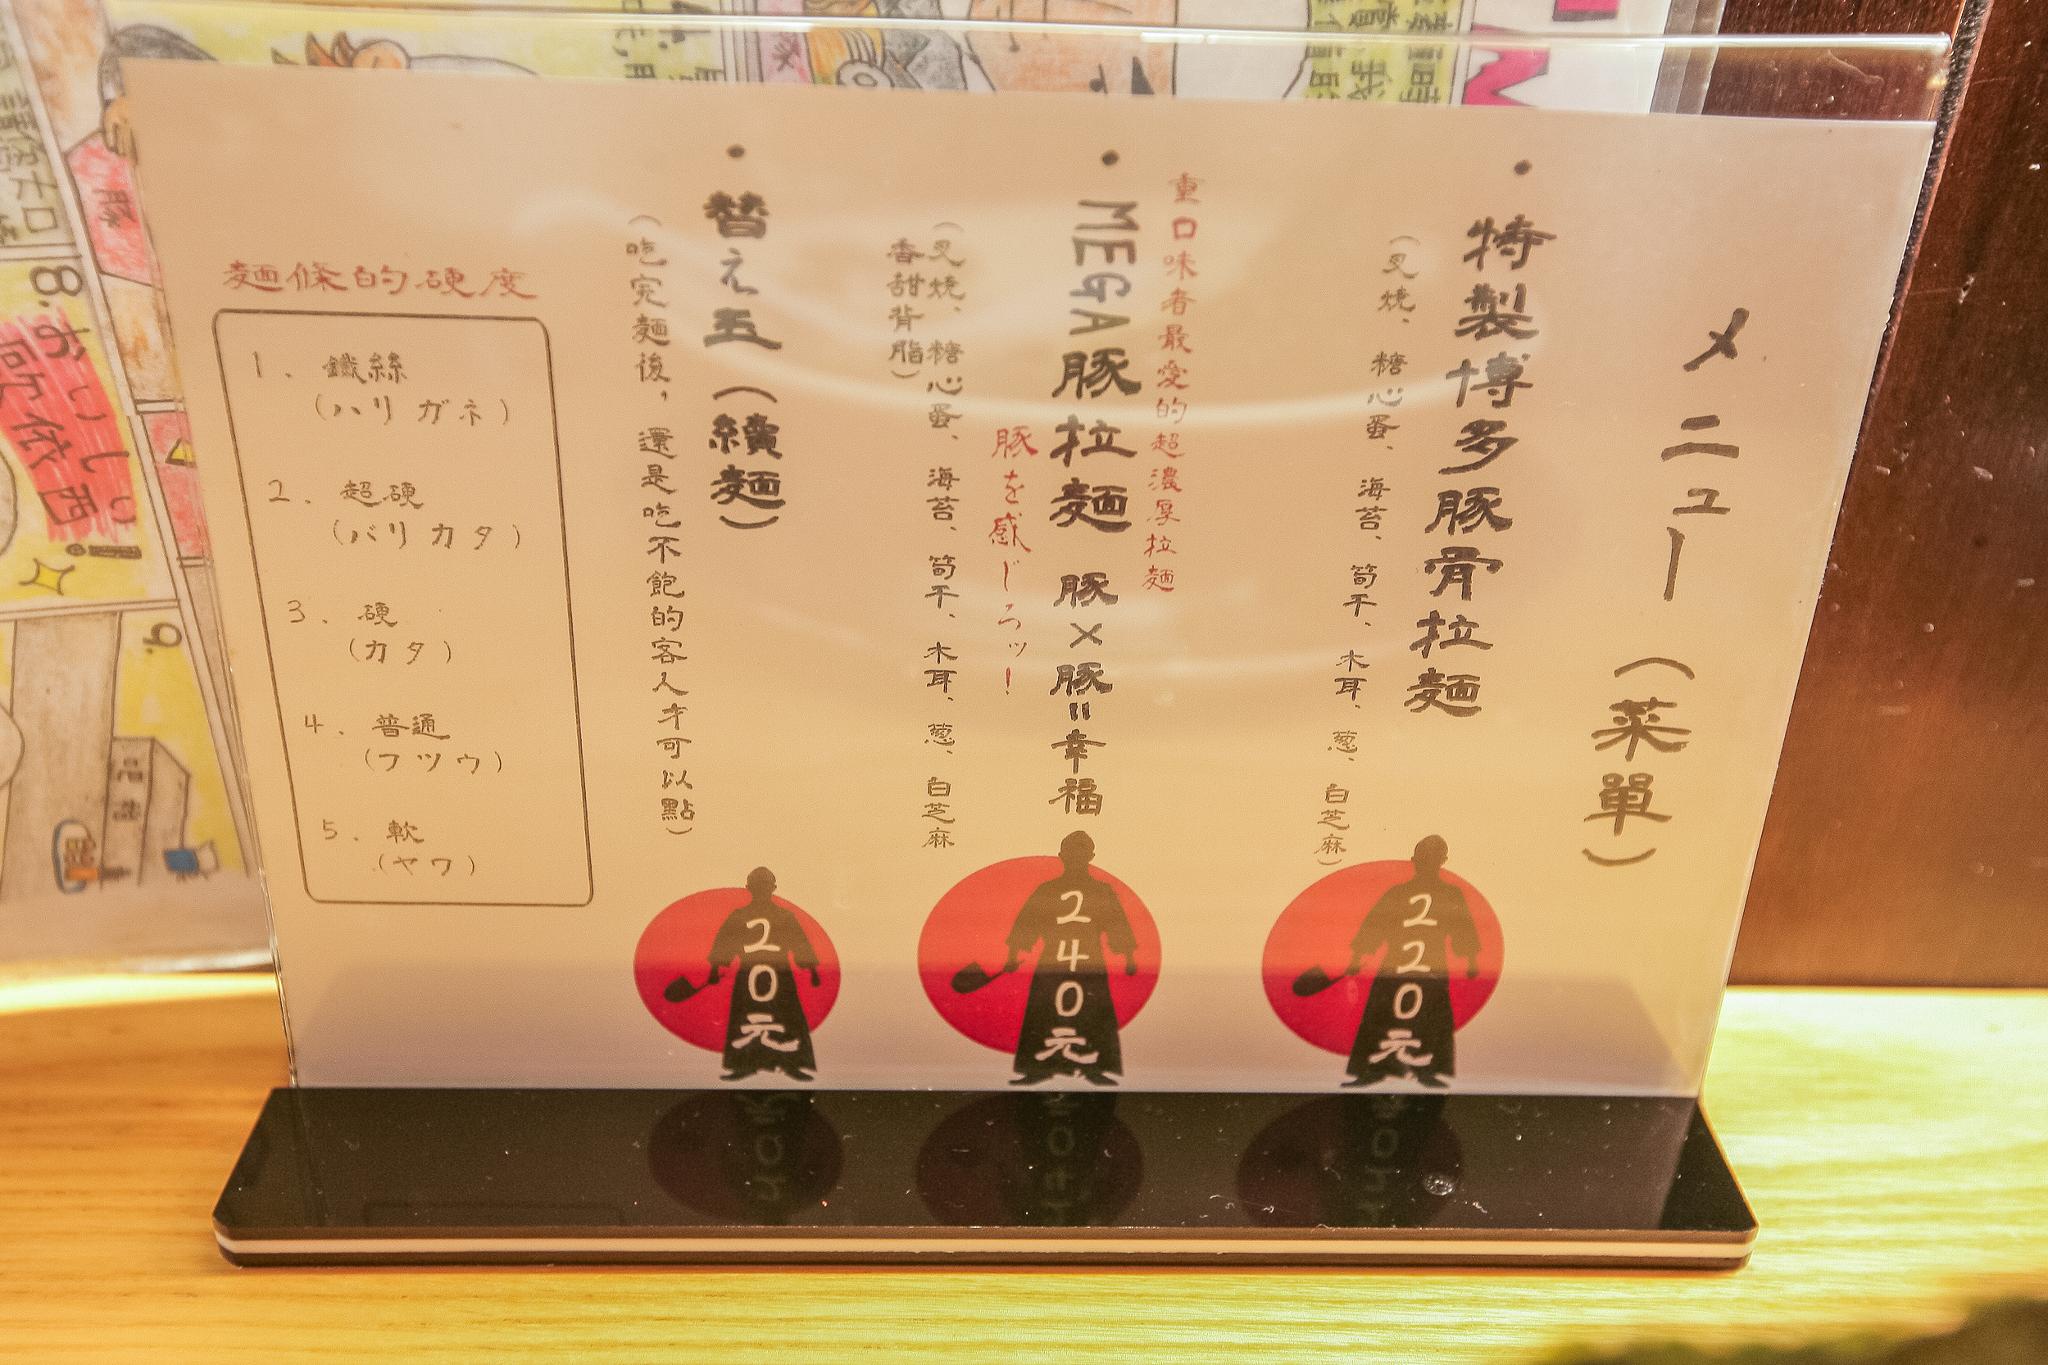 メニュー（菜單）
・特製博多豚骨拉麵
（叉燒、糖心蛋、海苔、筍干、木耳、蔥、白芝麻）
220元
重口味者最愛的超濃厚拉麵
・MEGA豚拉麵 豚×豚=幸福
豚を感じろッ！
（叉燒、糖心蛋、海苔、筍干、木耳、蔥、白芝麻
香甜背脂）
240元
・替え玉（續麵）
（吃完麵後，還是吃不飽的客人才可以點）
20元
麵條的硬度
1. 鐵絲
（ハリガネ）
2. 超硬
（バリカタ）
3. 硬
（カタ）
4. 普通
（フツウ）
5. 軟
（ヤワ）
8.おいしい!
9.